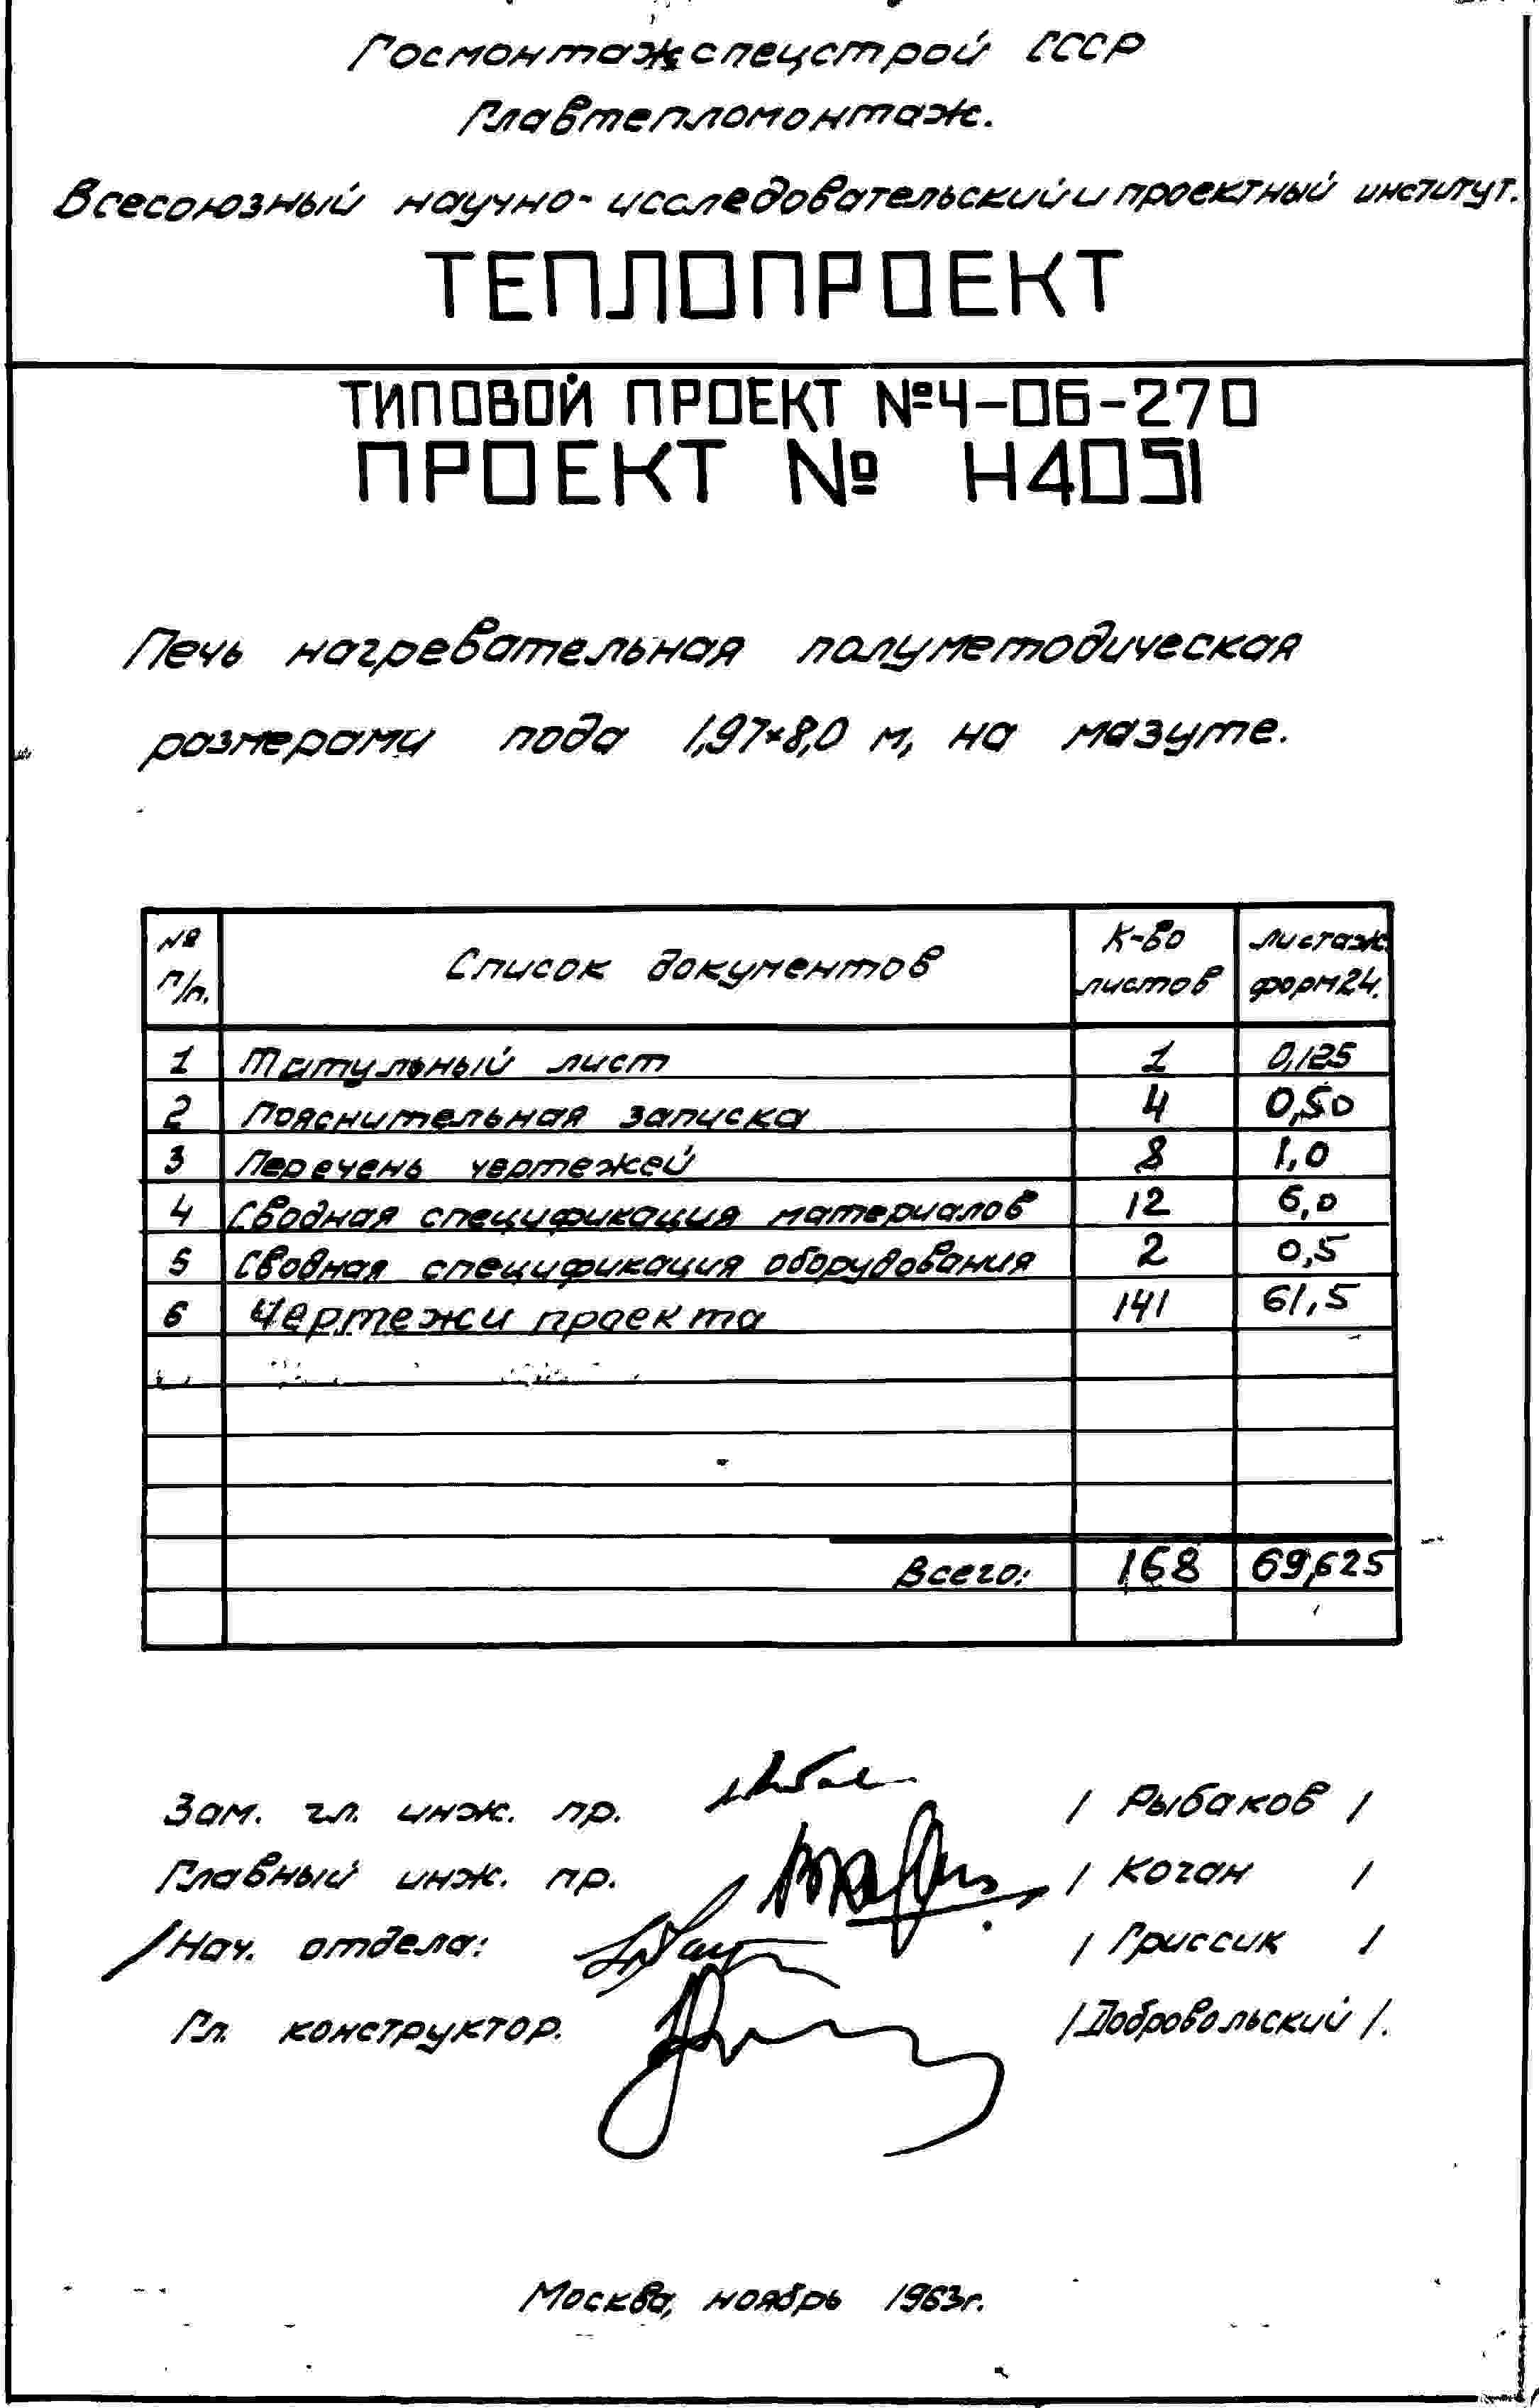 Госмонтажспецстрой СССР
Главтепломонтаж.
Всесоюзный научно-исследовательский и проектный институт.
ТЕПЛОПРОЕКТ
ТИПОВОЙ ПРОЕКТ №4-06-270
ПРОЕКТ № Н4051
Печь нагревательная полуметодическая
размерами пода 1,97×8,0 м, на мазуте.
№ п/п. Список документов К-во листов Листаж форм24.
1 Титульный лист 1 0,125
2 Пояснительная записка 4 0,50
3 Перечень чертежей 8 1,0
4 Сводная спецификация материалов 12 6,0
5 Сводная спецификация оборудования 2 0,5
6 Чертежи проекта 141 61,5
Всего: 168 69,625
Зам. гл. инж. пр. / Рыбаков /
Главный инж. пр. / Коган /
/Нач. отдела: / Гриссик /
Гл. конструктор. /Добровольский /.
Москва, ноябрь 1963г.